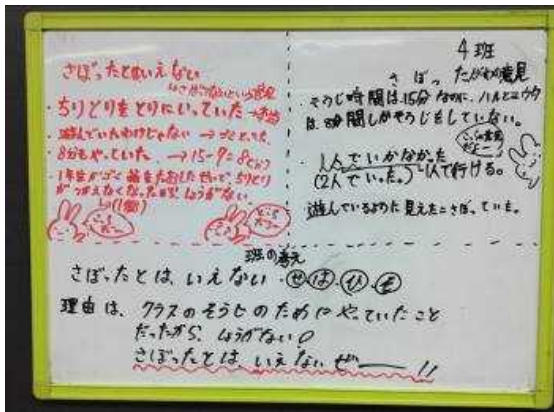 さぼったとはいえない
ちりとりをとりにいっていた
・遊んでいたわけじゃない → ゴミとった
・8分もやっていた → 15-7=8
・1年生がゴミ箱をたおしたせいで、ちりとり
がつかえなくなったから、しょうがない。
4班
さぼったがわの意見
・そうじ時間は、15分なのに、ハルとユウタ
は、8分間しかそうじをしていない。
・1人でいかなかった
(2人でいった。) 1人で行ける。
遊んでいるように見えた=さぼっていた。
班の考え
さぼったとは、いえない
理由は、クラスのそうじのためにやっていたこと
だったから、しょうがない。
さぼったとは、いえないぜー!!